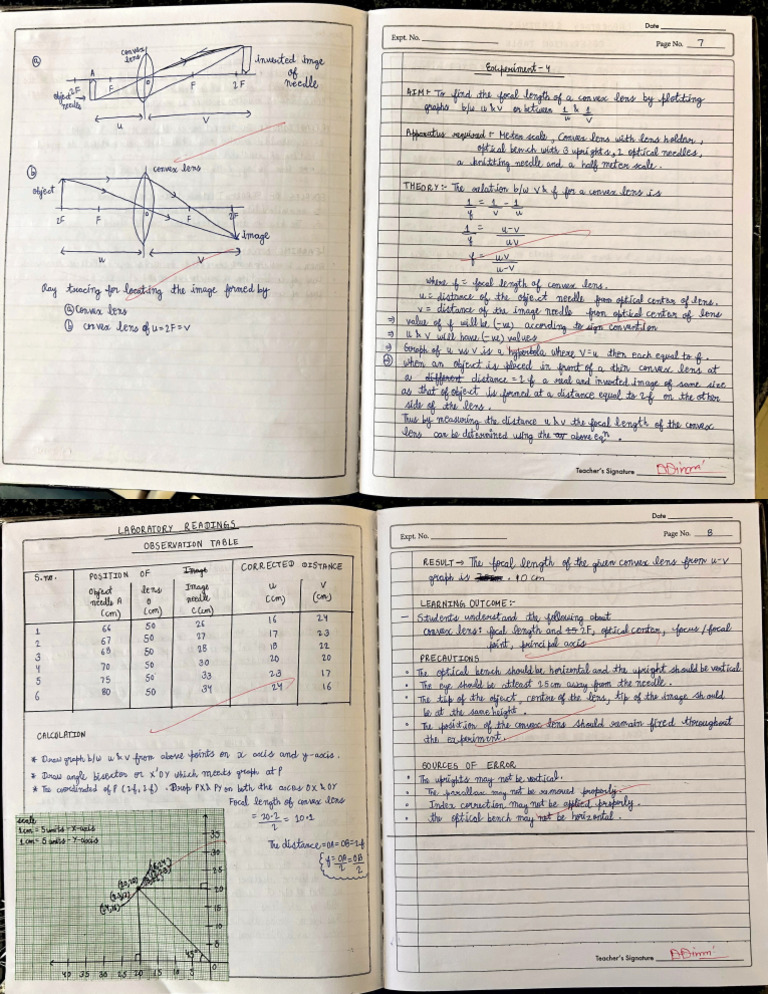 (a)
convex
lens
A
2F
O
F
2F
object
needle
inverted imge
of
needle
u
v
(b)
convex lens
object
2F
F
O
F
2F
Image
u
v
Ray tracing for locating the image formed by
(a) Convex lens
(b) convex lens of u=2F=v
Date
Expt. No.
Page No. 7
Experiment - 4
AIM:- To find the focal length of a convex lens by plotting
graphs b/w u & v or between 1/u & 1/v
Apparatus required:- Meter scale, Convex lens with lens holder,
optical bench with 3 uprights, 2 optical needles,
a knitting needle and a half meter scale.
THEORY:- The relation b/w V & f for a convex lens is
1/f = 1/v - 1/u
1/f = u-v/uv
f = uv/u-v
where f = focal length of convex lens.
u = distance of the object needle from optical center of lens.
v = distance of the image needle from optical center of lens
⇒ value of f will be (-ve) according to sign convention
⇒ u & v will have (-ve) values
⇒ Graph of u vs v is a hyperbola where V=u then each equal to f.
⇒ when an object is placed in front of a thin convex lens at
a different distance = 2f a real and inverted image of same size
as that of object is formed at a distance equal to 2f on the other
side of the lens.
Thus by measuring the distance u & v the focal length of the convex
lens can be determined using the above eqn.
Teacher's Signature
LABORATORY READINGS
OBSERVATION TABLE
S.no. POSITION OF Image CORRECTED DISTANCE
Object needle A (cm) lens O (cm) Image needle C(cm) u (cm) v (cm)
1 66 50 26 16 24
2 67 50 27 17 23
3 68 50 28 18 22
4 70 50 30 20 20
5 75 50 33 23 17
6 80 50 34 24 16
CALCULATION
* Draw graph b/w u & v from above points on x axis and y-axis.
* Draw angle bisector or X'OY which meets graph at P
* The coordinated of P (2f, 2f). Drop PX & PY on both the axces OX & OY
Focal length of convex lens
= 20.2/2 = 10.1
The distance = OA = OB = 2f
{ f = OA/2 = OB/2
scale
1 cm = 5 units - X-axis
1 cm = 5 units - Y-axis
35
30
25
20
15
10
5
0
45°
40 35 30 25 20 15 10 5
Date
Expt. No.
Page No. 8
RESULT → The focal length of the given convex lens from u-v
graph is 10 cm
LEARNING OUTCOME:-
- Students understand the following about
convex lens: focal length and 2F, optical center, focus/focal
point, principal axis
PRECAUTIONS
• The optical bench should be horizontal and the upright should be vertical
• The eye should be atleast 25cm away from the needle.
• The tip of the object, centre of the lens, tip of the image should
be at the same height.
• The position of the convex lens should remain fixed throughout
the experiment.
SOURCES OF ERROR
• The uprights may not be vertical.
• The parallax may not be removed properly.
• Index correction may not be applied properly.
• the optical bench may not be horizontal.
Teacher's Signature